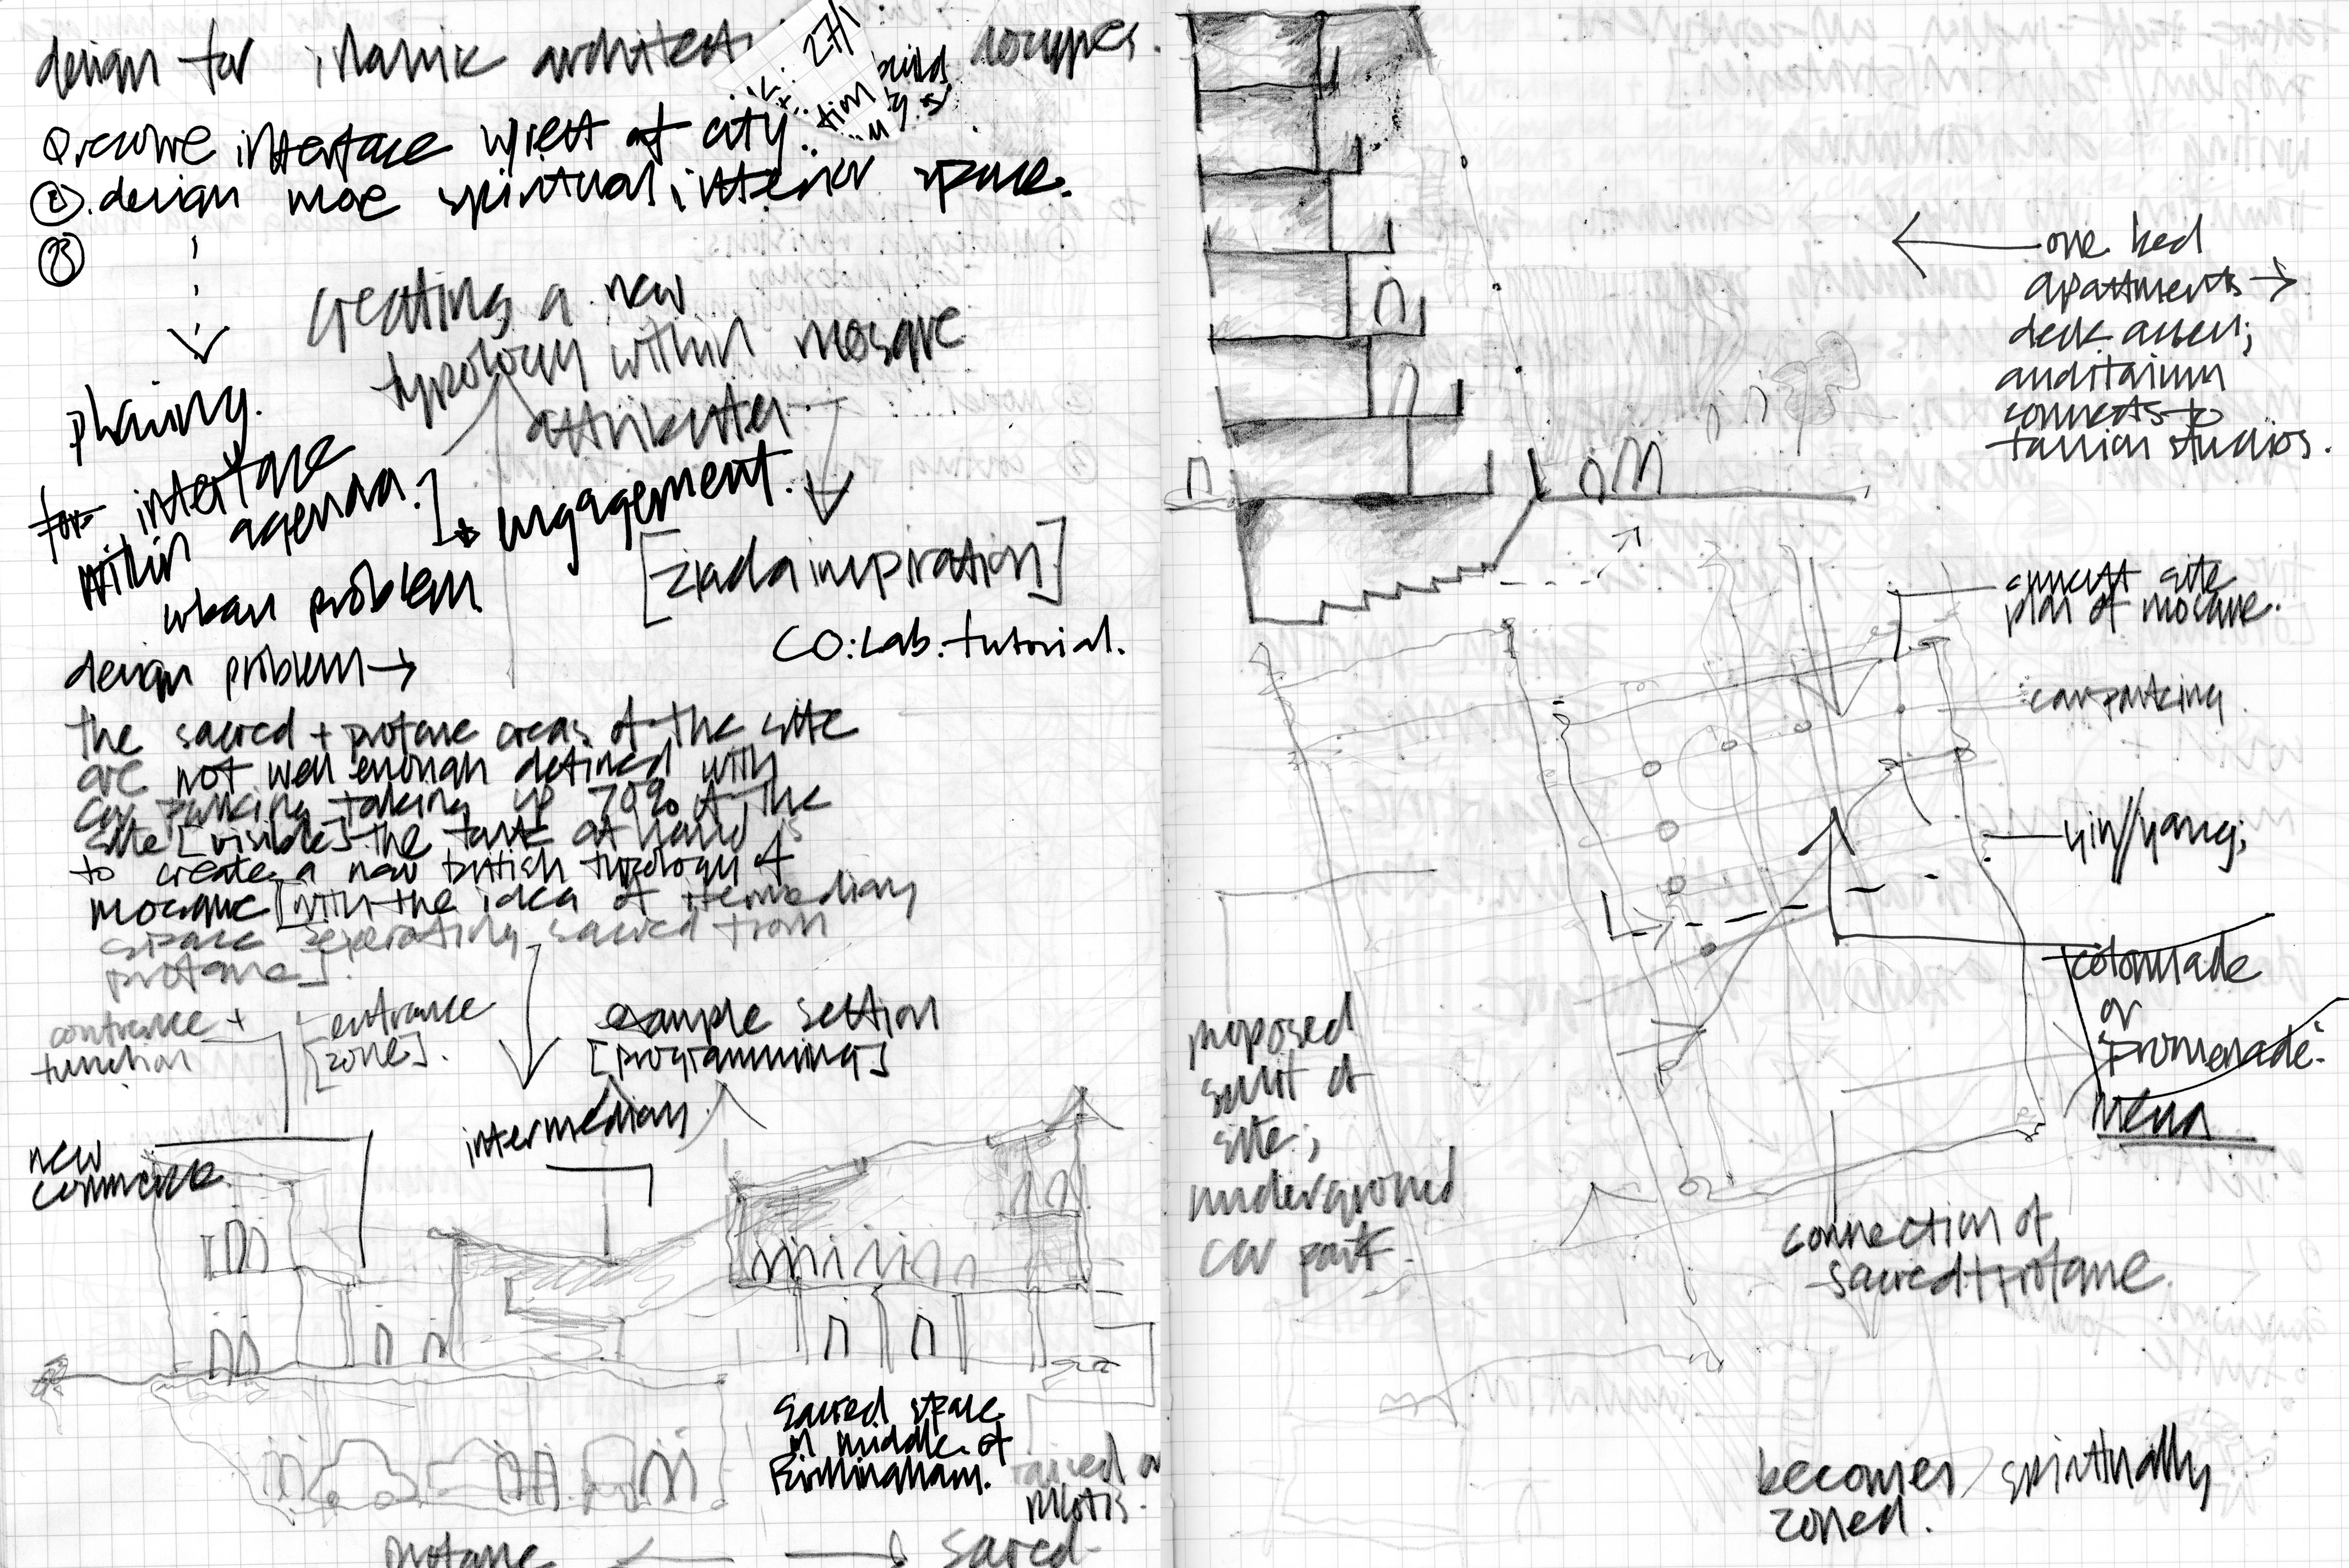 design for islamic architect
27/1
build
tim
① resolve interface w/rest of city.
②. design more spiritual interior space.
③
creating a new
typology within mosque
attributes
planning.
for interface
within agenda.
engagement.
urban problem
[ziada inspiration]
CO:Lab. tutorial.
design problem →
the sacred + profane areas of the site
are not well enough defined with
car parking taking up 70% of the
site [visible] the task at hand is
to create a new british typology of
mosque [with the idea of itermediary
space seperating sacred from
profane].
conference +
function
entrance
[zone].
example section
[programming]
intermediary
new
commerce
sacred space
in middle of
Birmingham.
raised on
pilotis.
profane
sacred
← one bed
apartments →
deck access;
auditorium
connects to
studios.
current site
plan of mosque.
car parking.
yin//yang;
colonnade
or
promenade.
proposed
split of
site;
underground
car park.
connection of
sacred + profane.
becomes spiritually
zoned.